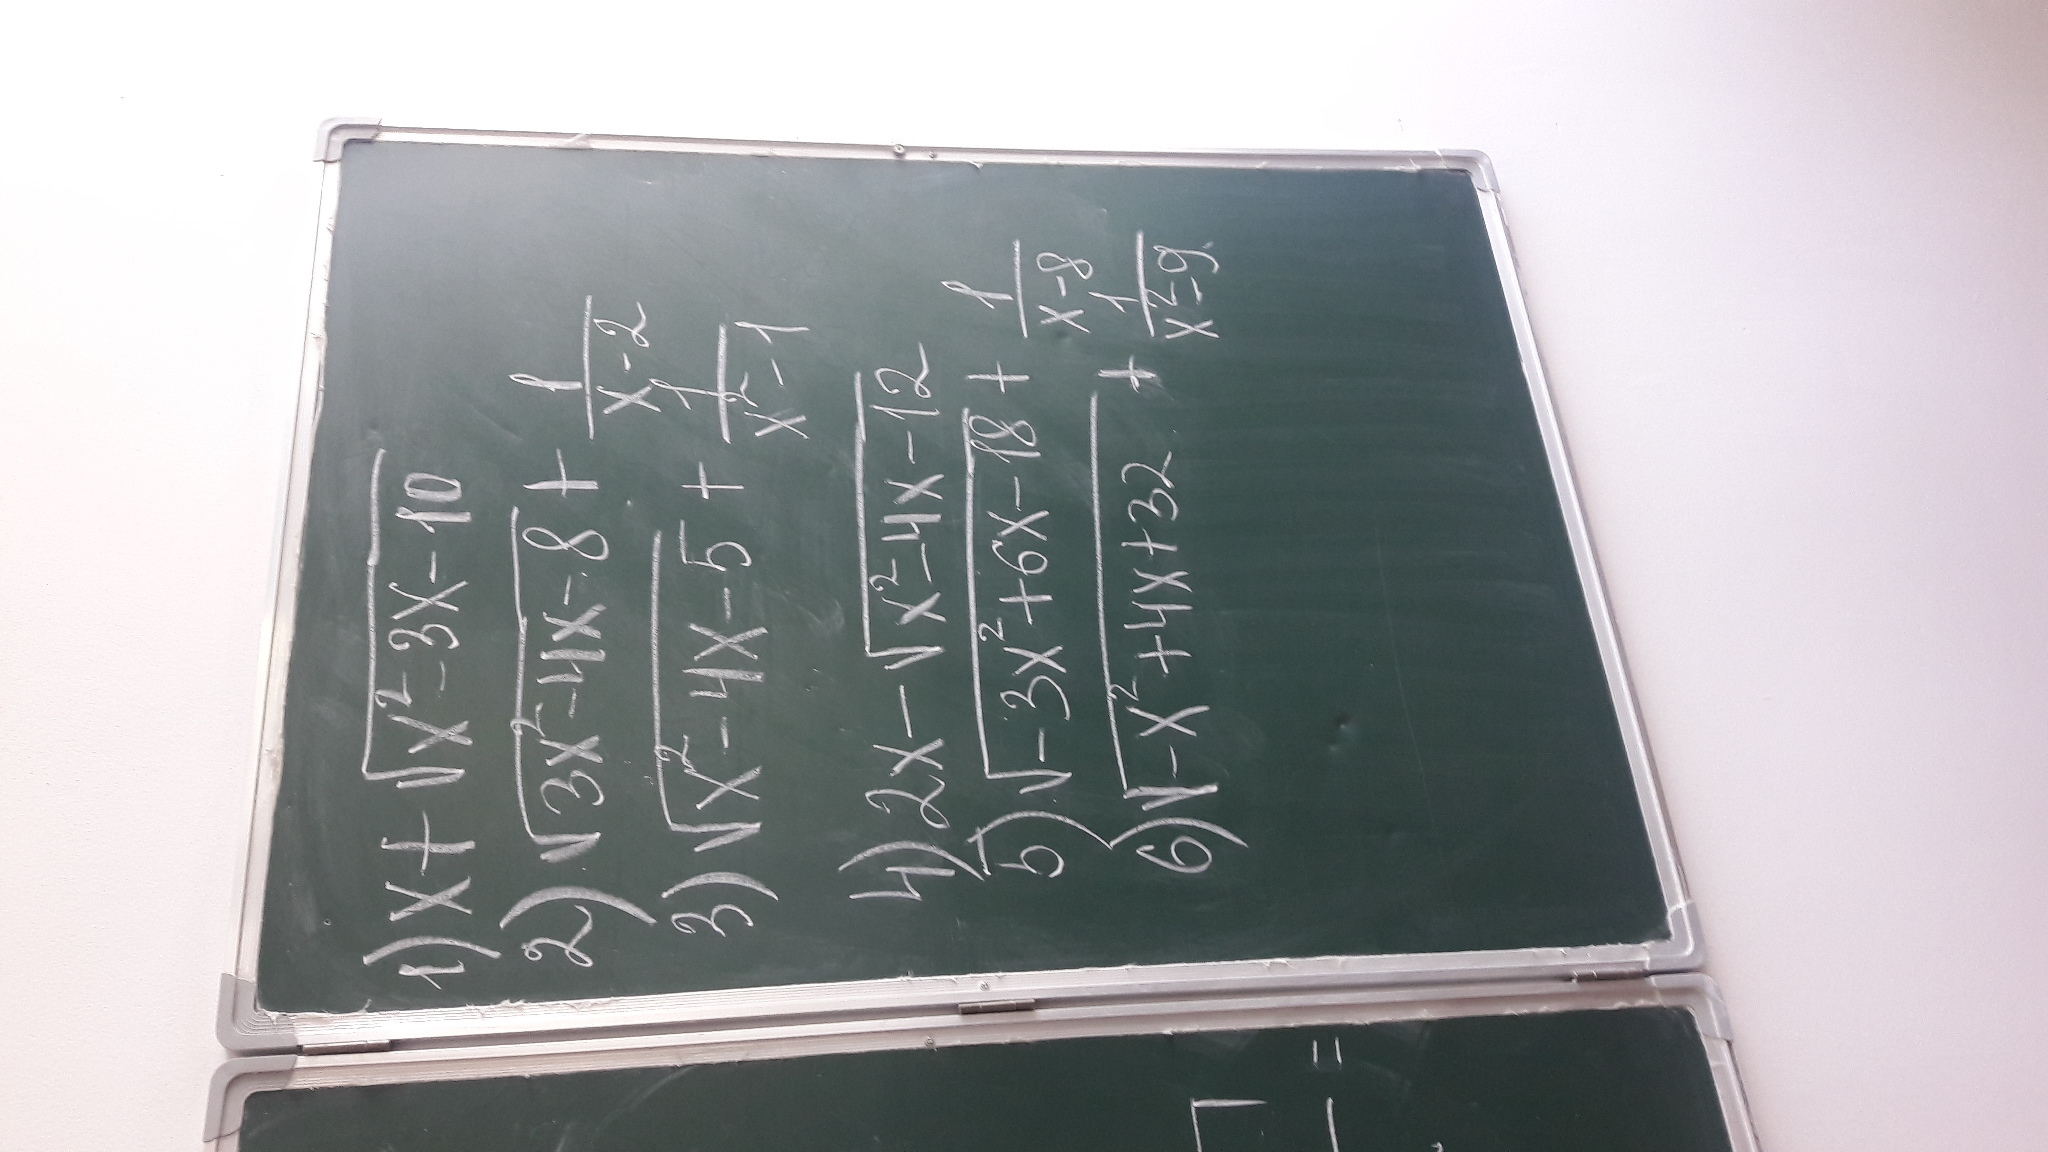 1) x + √(x² - 3x - 10)
2) √(3x² - 4x - 8) + 1/(x - 2)
3) √(x² - 4x - 5) + 1/(x² - 1)
4) 2x - √(x² - 4x - 12)
5) √(-3x² + 6x - 18) + 1/(x - 8)
6) √(-x² + 4x + 32) + 1/(x² - 9)
=